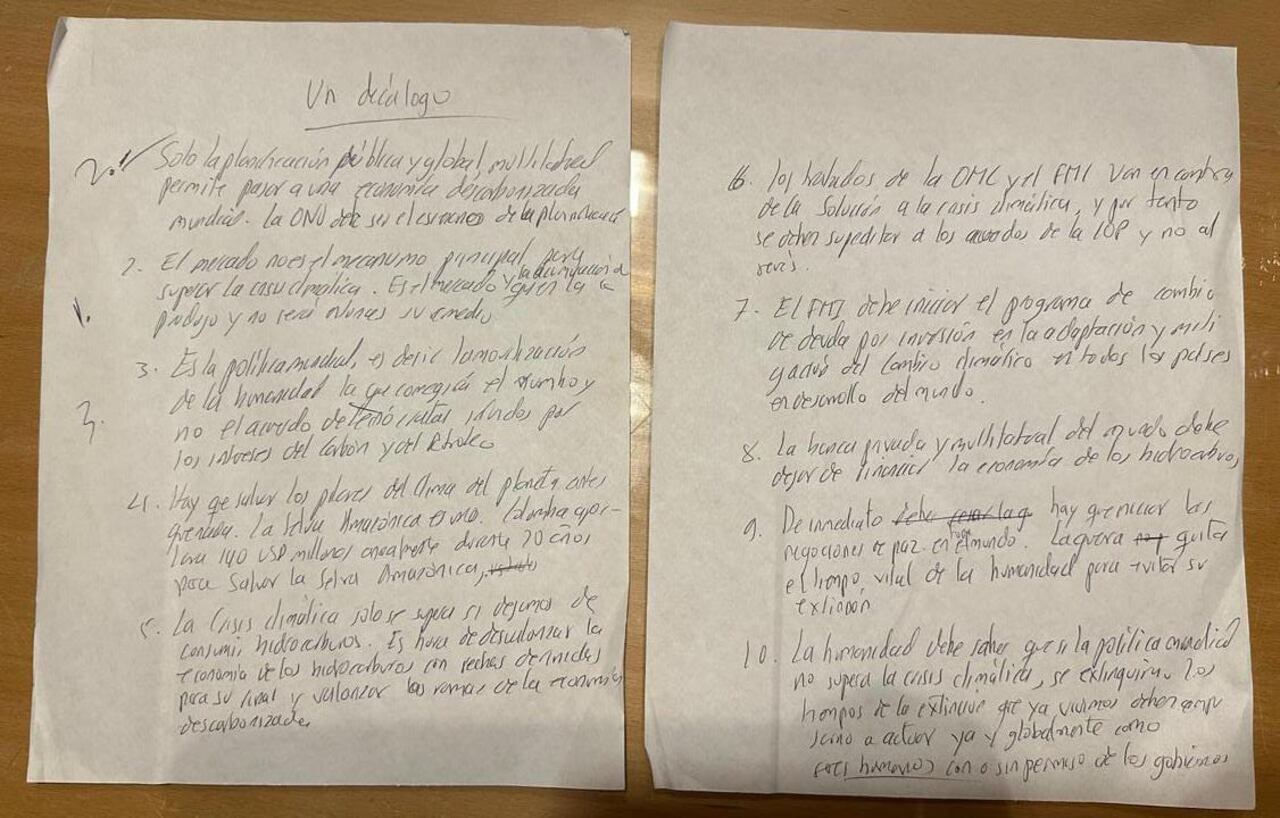 Un decálogo
2. Solo la planificación pública y global, multilateral
permite pasar a una economía descarbonizada
mundial. La ONU debe ser el escenario de la planificación
2. El mercado no es el mecanismo principal para
superar la crisis climática. Es el mercado y la acumulación de
quien la
produjo y no será entonces su remedio
1.
3. Es la política mundial, es decir la movilización
de la humanidad la que corregirá el rumbo y
3.
no el acuerdo de tecnócratas influidos por
los intereses del Carbón y del Petróleo
4. Hay que salvar los pilares del clima del planeta antes
que nada. La Selva Amazónica es uno. Colombia apor-
tará 140 USD millones anualmente durante 20 años
para salvar la Selva Amazónica,
5. La Crisis climática solo se supera si dejamos de
consumir hidrocarburos. Es hora de desvalorizar la
economía de los hidrocarburos con fechas definidas
para su final y valorizar las ramas de la economía
descarbonizada
6. los tratados de la OMC y el FMI van en contra
de la Solución a la crisis climática, y por tanto
se deben supeditar a los acuerdos de la COP y no al
revés.
7. El FMI debe iniciar el programa de cambio
de deuda por inversión en la adaptación y miti
gación del Cambio climático en todos los países
en desarrollo del mundo.
8. La banca privada y multilateral del mundo debe
dejar de financiar la economía de los hidrocarburos
9. De inmediato hay que iniciar las
negociones de paz en todo el mundo. La guerra quita
el tiempo vital de la humanidad para evitar su
extinción
10. La humanidad debe saber que si la política mundial
no supera la crisis climática, se extinguirá. Los
tiempos de la extinción que ya vivimos deben
a actuar ya y globalmente como
seres humanos con o sin permiso de los gobiernos